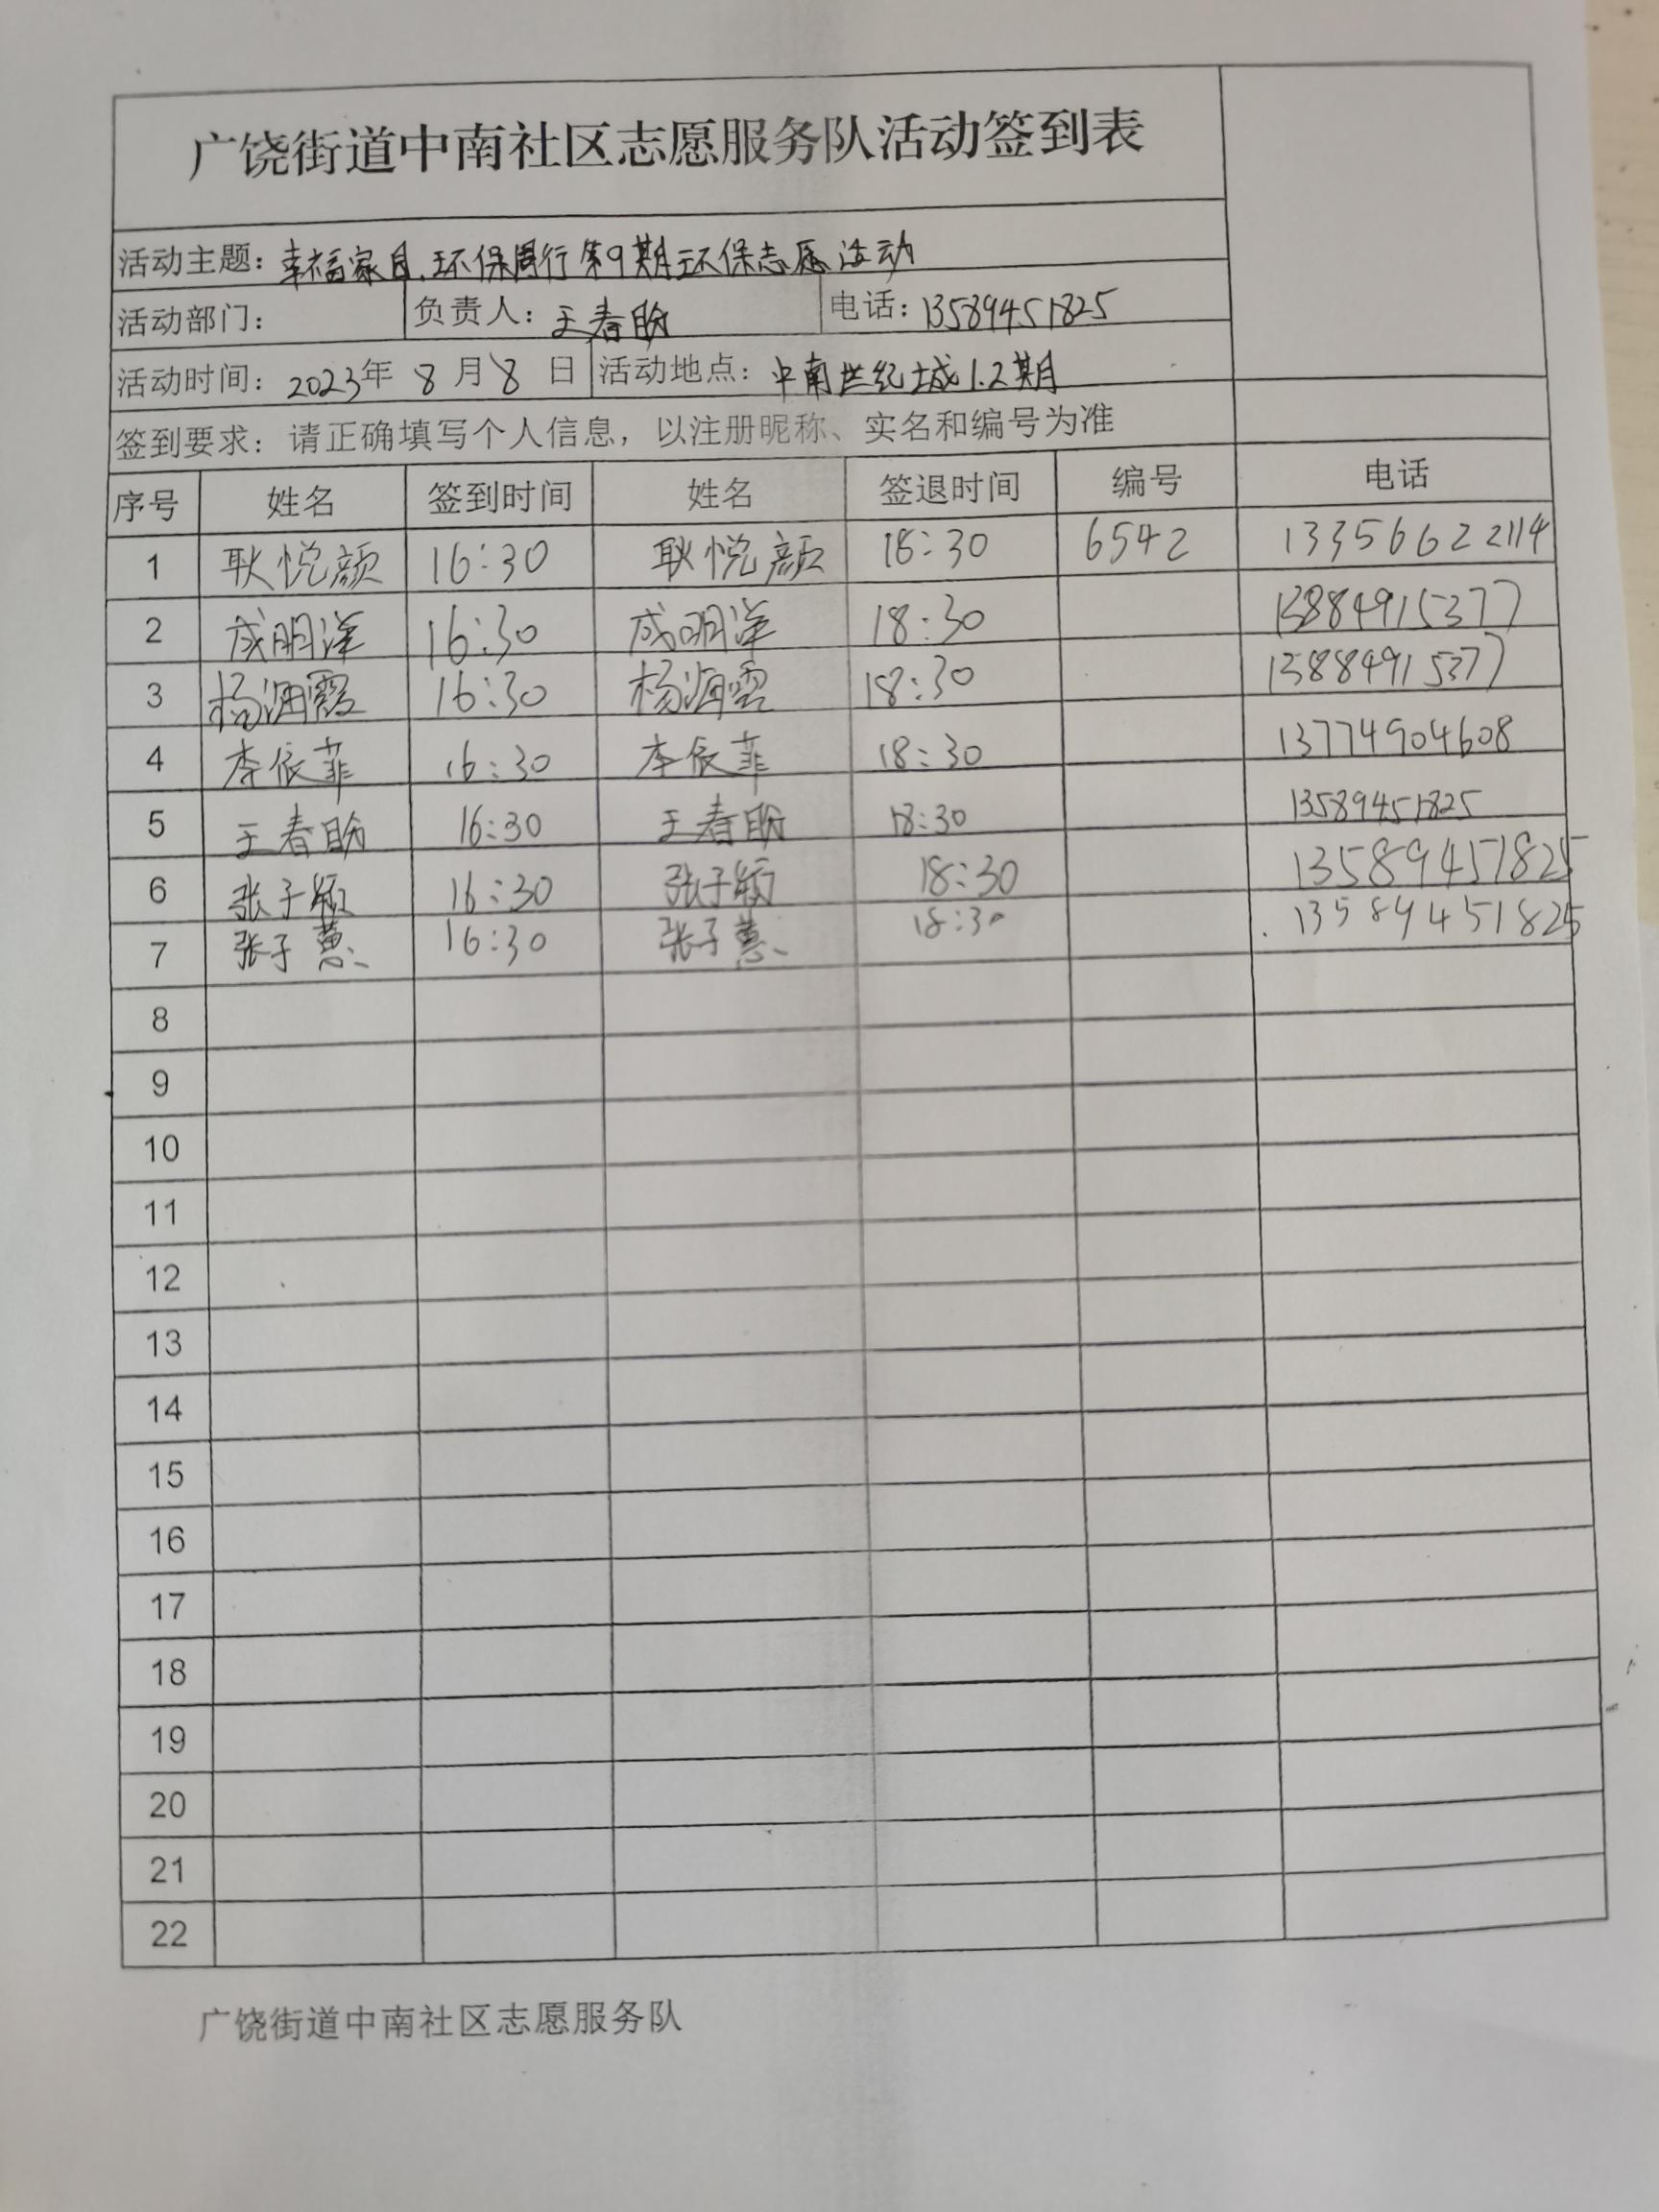 广饶街道中南社区志愿服务队活动签到表
活动主题：幸福家园.环保同行第9期环保志愿活动
活动部门： 负责人：王春盼 电话：13589451825
活动时间：2023年 8 月 8 日 活动地点：中南世纪城1.2期
签到要求：请正确填写个人信息，以注册昵称、实名和编号为准
序号 姓名 签到时间 姓名 签退时间 编号 电话
1 耿悦颜 16:30 耿悦颜 18:30 6542 13356622114
2 成明泽 16:30 成明泽 18:30 13884915377
3 杨海霞 16:30 杨海霞 18:30 13884915377
4 李依菲 16:30 李依菲 18:30 13774904608
5 王春盼 16:30 王春盼 18:30 13589451825
6 张子颖 16:30 张子颖 18:30 13589451825
7 张子蕙 16:30 张子蕙 18:30 13589451825
8
9
10
11
12
13
14
15
16
17
18
19
20
21
22
广饶街道中南社区志愿服务队